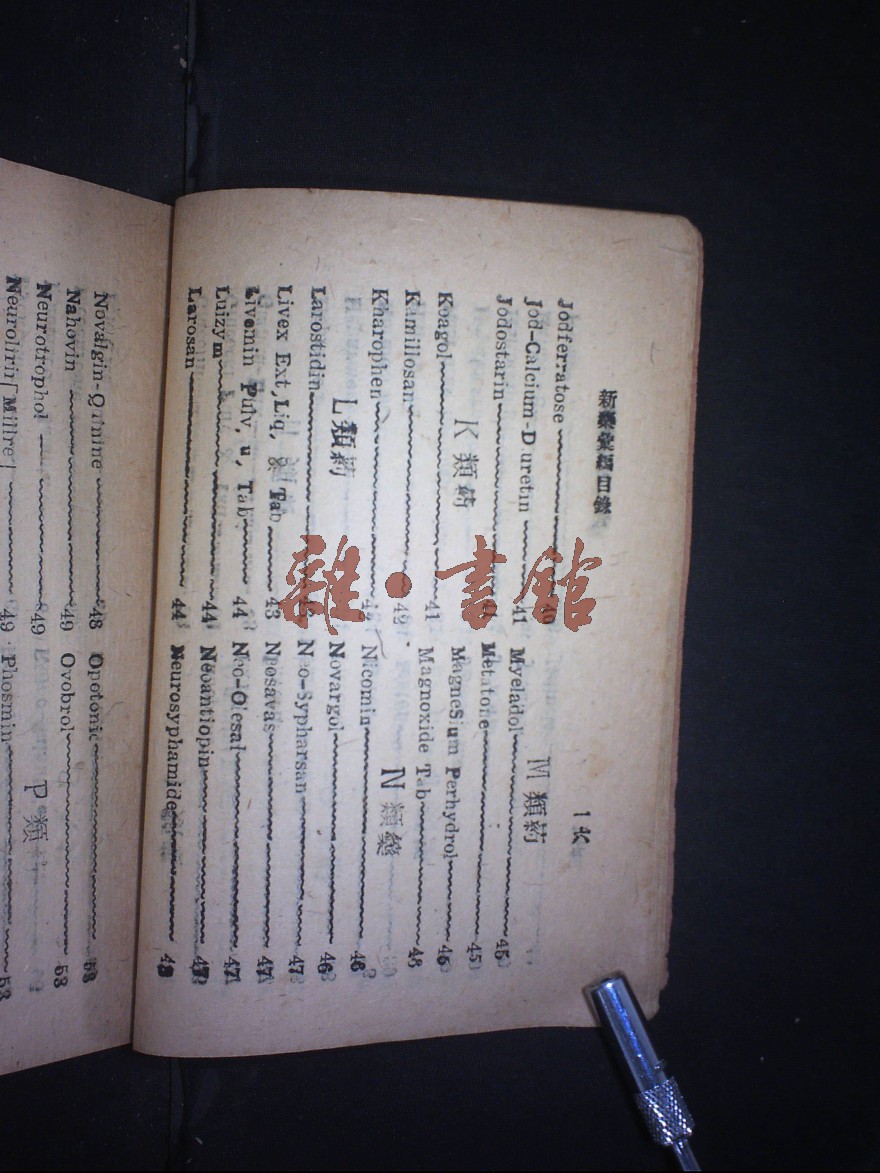 Jodferratose 40
Jod-Calcium-Diuretin 41
Jodostarin
K 類藥
Koagol 41
Kamillosan 42
Kharophen
L 類药
Larostidin
Livex Ext, Liq, & Tab 43
Livemin Pulv, u, Tab 44
Luizym 44
Larosan 44
M 類药
Myeladol 45
Metatone 45
MagneSium Perhydrol 45
Magnoxide Tab
N 類藥
Nicomin 46
Novargol 46
Neo-Sypharsan 47
Neosavas 47
Neo-Olesal 47
Neoantiopin
Neurosyphamide
Novalgin-Quinine 48
Nahovin 49
Neurotrophol 49
49
Opotonic 53
Ovobrol 53
P 類
Phosmin 53
雅·書館